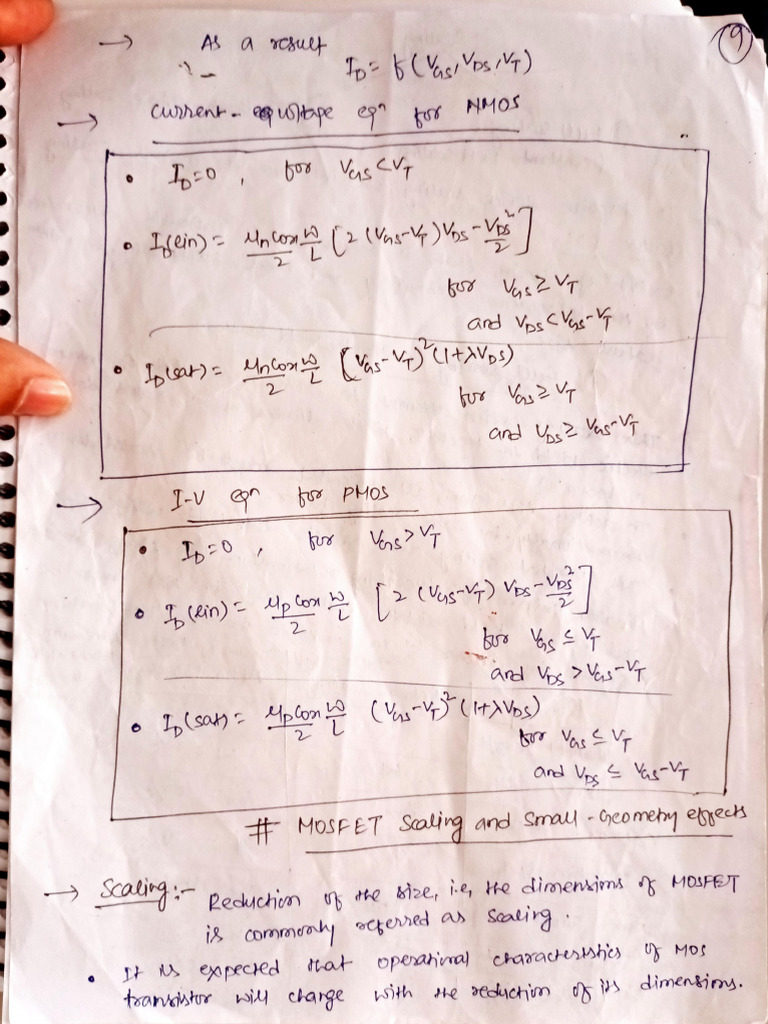 9
→ As a result
I_D = f(V_GS, V_DS, V_T)
→ Current - voltage eqn for NMOS
• I_D = 0 , for V_GS < V_T
• I_D(lin) = μnCox/2 W/L [2(V_GS - V_T) V_DS - V_DS²/2]
for V_GS ≥ V_T
and V_DS < V_GS - V_T
• I_D(sat) = μnCox/2 W/L (V_GS - V_T)² (1+λV_DS)
for V_GS ≥ V_T
and V_DS ≥ V_GS - V_T
→ I-V eqn for PMOS
• I_D = 0 , for V_GS > V_T
• I_D(lin) = μpCox/2 W/L [2 (V_GS - V_T) V_DS - V_DS²/2]
for V_GS ≤ V_T
and V_DS > V_GS - V_T
• I_D(sat) = μpCox/2 W/L (V_GS - V_T)² (1+λV_DS)
for V_GS ≤ V_T
and V_DS ≤ V_GS - V_T
# MOSFET Scaling and Small - Geometry effects
→ Scaling :- Reduction of the size, i.e, the dimensions of MOSFET
is commonly referred as scaling .
• It is expected that operational characteristics of MOS
transistor will change with the reduction of its dimensions.